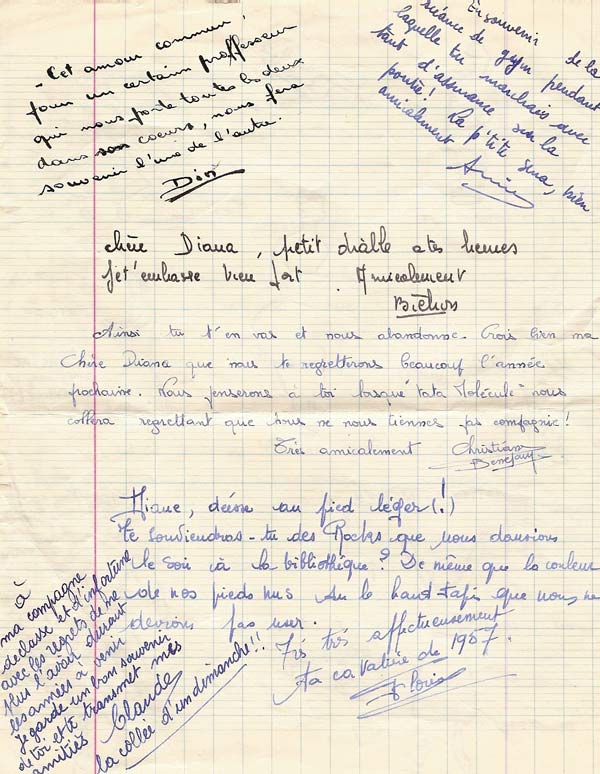 - Cet amour commun !
pour un certain proffesseur
qui nous porte toutes les deux
dans son coeurs, nous fera
souvenir l'une de l'autre.
En souvenir de la
séance de gym pendant
laquelle tu marchais avec
tant d'assurance sur la
poutre! La p'tite bien
amicalement
chère Diana, petit diable a tes heures
Je t'embrasse bien fort. Amicalement
Ainsi tu t'en vas et nous abandonne. Crois bien ma
Chère Diana que nous te regretterons beaucoup l'année
prochaine. Nous penserons à toi lorsque "tata Molécule" nous
collera regrettant que tu ne nous tiennes pas compagnie!
Très amicalement Christiane
Diane, déesse au pied léger (!)
Te souviendras-tu des Rocks que nous dansions
le soir à la bibliothèque? De même que la couleur
de nos pieds nus sur le haud-tapis que nous ne
devrions pas user.
Très très affectueusement
Ta cavalière de 1957.
à
ma compagne
de classe et d'infortune
avec les regrets de ne
plus l'avoir durant
les années à venir
Je garde un bon souvenir
de toi et te transmet mes
amitiés
Claude
la collée d'un dimanche!!